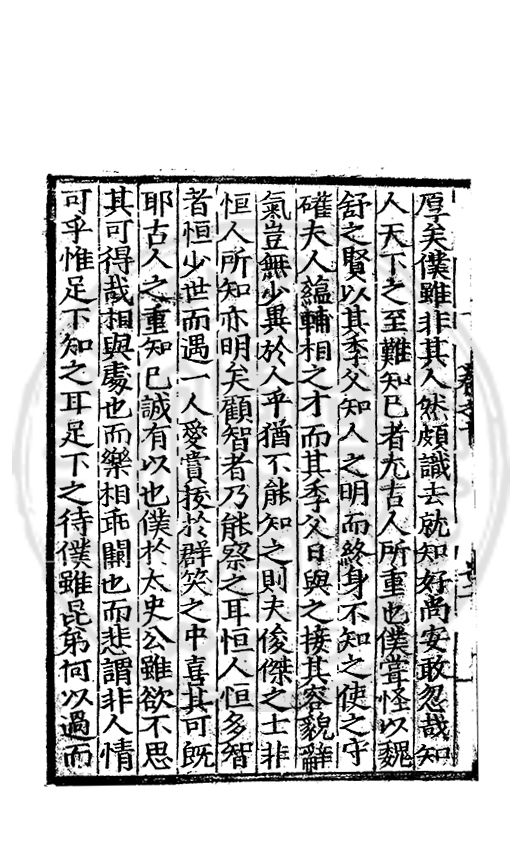 厚矣僕雖非其人然頗識去就知好尚安敢忽哉知
人天下之至難知己者尤古人所重也僕嘗怪以魏
舒之賢以其季父知人之明而終身不知之使之守
碓夫人蘊輔相之才而其季父日與之接其容貌辭
氣豈無少異於人乎猶不能知之則夫俊傑之士非
恒人所知亦明矣顧智者乃能察之耳恒人恒多智
者恒少世而遇一人愛賞拔於群笑之中喜其可既
耶古人之重知己誠有以也僕於太史公雖欲不思
其可得哉相與處也而樂相乖闊也而悲謂非人情
可乎惟足下知之耳足下之待僕雖昆弟何以過而